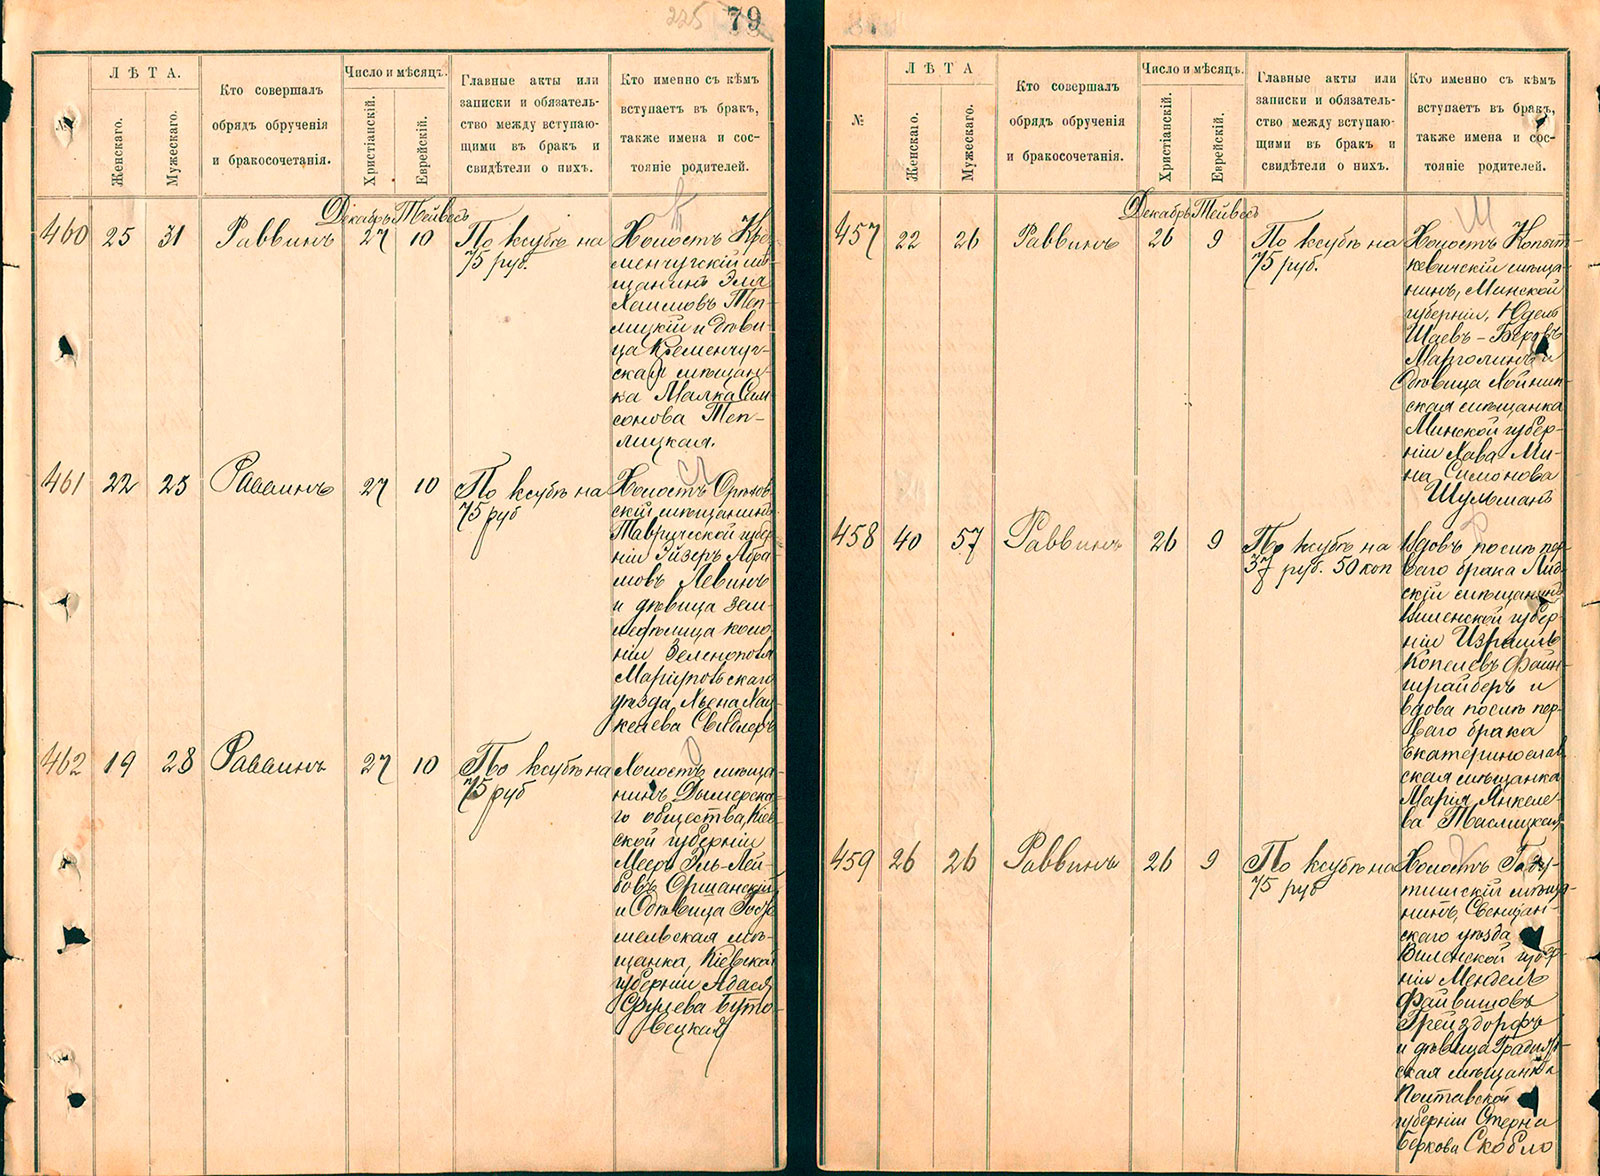 225 79
№
ЛѢТА.
Женскаго.
Мужескаго.
Кто совершалъ
обрядъ обрученія
и бракосочетанія.
Число и мѣсяцъ.
Христіанскій.
Еврейскій.
Главные акты или
записки и обязатель-
ство между вступаю-
щими въ бракъ и
свидѣтели о нихъ.
Кто именно съ кѣмъ
вступаетъ въ бракъ,
также имена и сос-
тояніе родителей.
Декабрь Тейвесъ
460 25 31 Раввинъ 27 10 По ксубѣ на
75 руб.
Холостъ Кре-
менчугскій мѣ-
щанинъ Эля
Хаимовъ Теп-
лицкій и дѣви-
ца Кременчуг-
ская мѣщан-
ка Малка Сим-
сонова Теп-
лицкая.
461 22 25 Раввинъ 27 10 По ксубѣ на
75 руб
Холостъ Орѣхов-
скій мѣщанинъ
Таврической губер-
ніи Эйзеръ Абра-
мовъ Левинъ
и дѣвица зем-
ледѣлица коло-
ніи Зеленополя
Маріупольскаго
уѣзда
462 19 28 Раввинъ 27 10 По ксубѣ на
75 руб
Холостъ мѣща-
нинъ Дымерска-
го общества, Кіев-
ской губерніи
Мееръ Эль-Лей-
бовъ Оршанскій
и дѣвица Гос-
мельская мѣ-
щанка, Кіевской
губерніи Адася
Сруцева Буто-
вецкая
№
ЛѢТА
Женскаго.
Мужескаго.
Кто совершалъ
обрядъ обрученія
и бракосочетанія.
Число и мѣсяцъ.
Христіанскій.
Еврейскій.
Главные акты или
записки и обязатель-
ство между вступаю-
щими въ бракъ и
свидѣтели о нихъ.
Кто именно съ кѣмъ
вступаетъ въ бракъ,
также имена и сос-
тояніе родителей.
Декабрь Тейвесъ
457 22 26 Раввинъ 26 9 По ксубѣ на
75 руб.
Холостъ Копыт-
кевичскій мѣща-
нинъ, Минской
губерніи, Юдель
Шаевъ-Беровъ
Марголинъ и
дѣвица Хойник-
ская мѣщанка
Минской губер-
ніи Хава Ми-
на Симонова
Шульманъ
458 40 57 Раввинъ 26 9 По ксубѣ на
37 руб. 50 коп
Вдовъ послѣ пер-
ваго брака Лид-
скій мѣщанинъ
Виленской губер-
ніи Израиль
Копелевъ Файн-
шрайберъ и
вдова послѣ пер-
ваго брака
Екатеринослав-
ская мѣщанка
Марія Янкеле-
ва Тавлицкая
459 26 26 Раввинъ 26 9 По ксубѣ на
75 руб
Холостъ Году-
тишскій мѣща-
нинъ, Свенцян-
скаго уѣзда
Виленской губер-
ніи Мендель
Файвишовъ
Грейздорфъ
и дѣвица Градижс-
ская мѣщанка
Полтавской
губерніи Стерна
Беркова Скобло